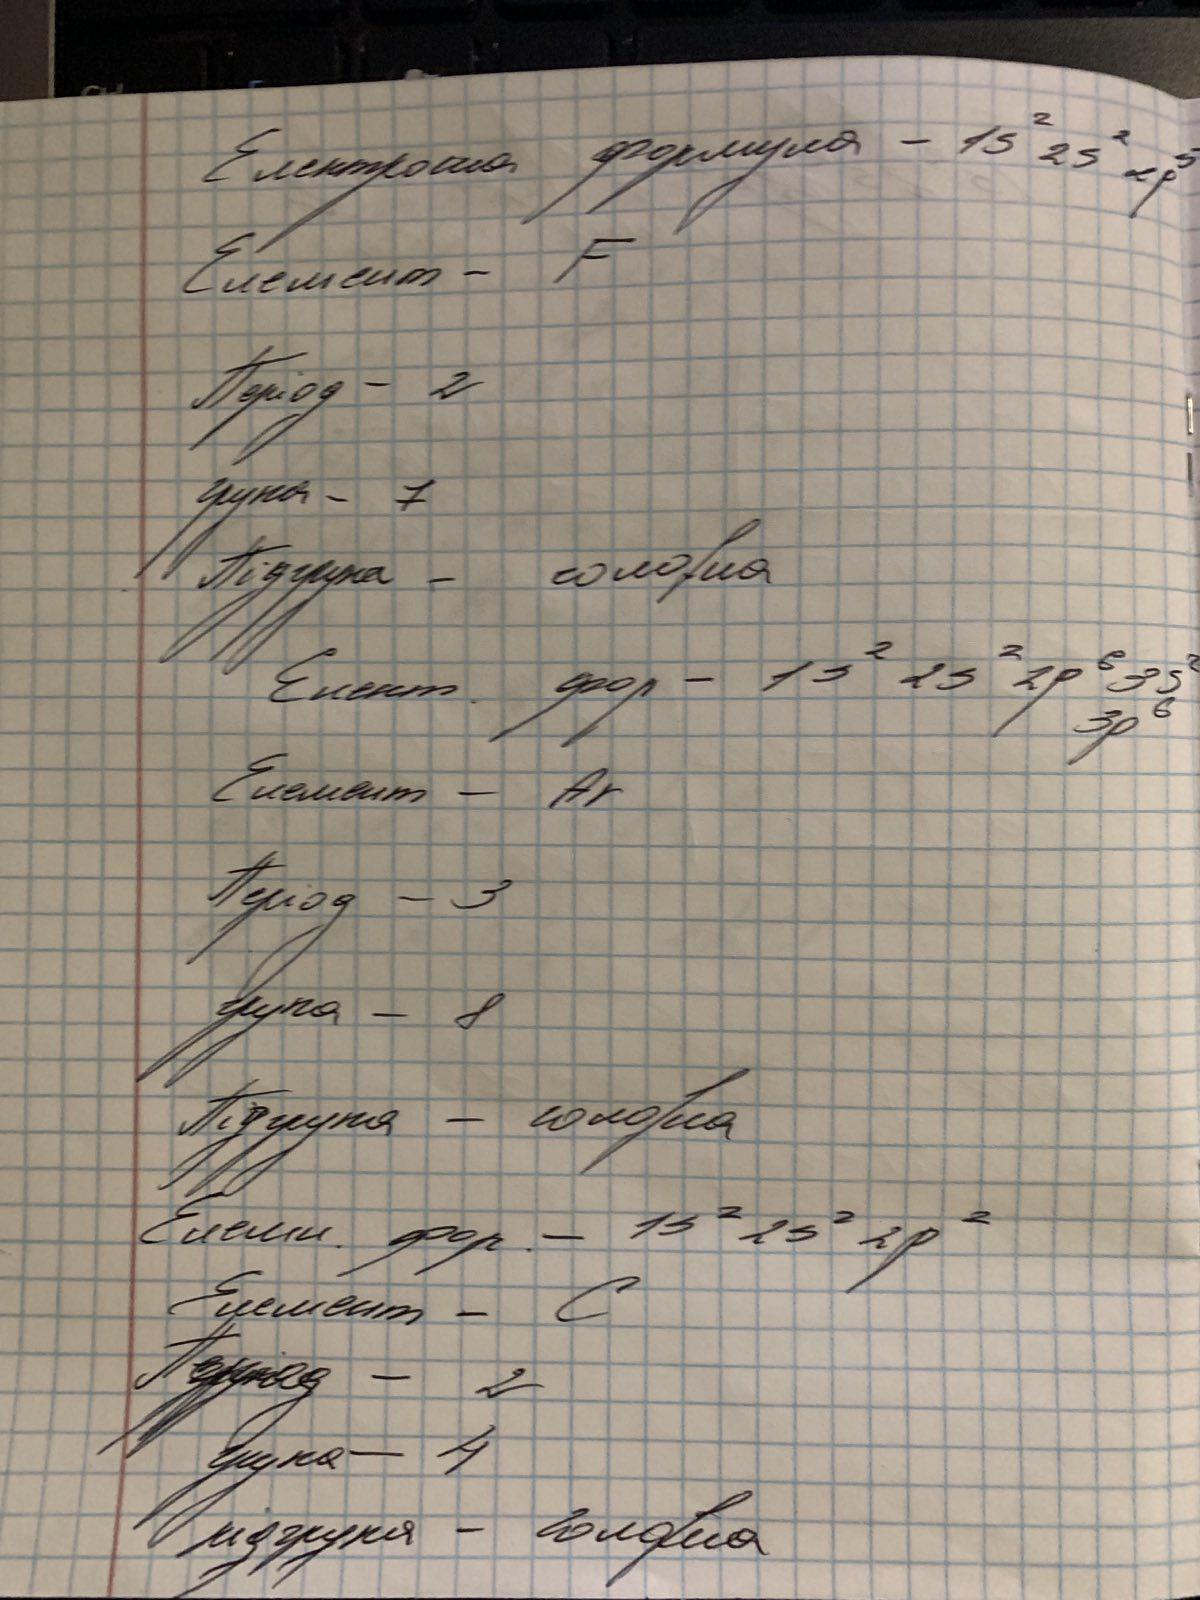 Електрона формула – 1s² 2s² 2p⁵
Елемент – F
Період – 2
група – 7
Підгрупа – головна
Елект. фор – 1s² 2s² 2p⁶ 3s²
3p⁶
Елемент – Ar
Період – 3
група – 8
Підгрупа – головна
Елемн. фор. – 1s² 2s² 2p²
Елемент – C
Період – 2
група – 4
підгрупа – головна